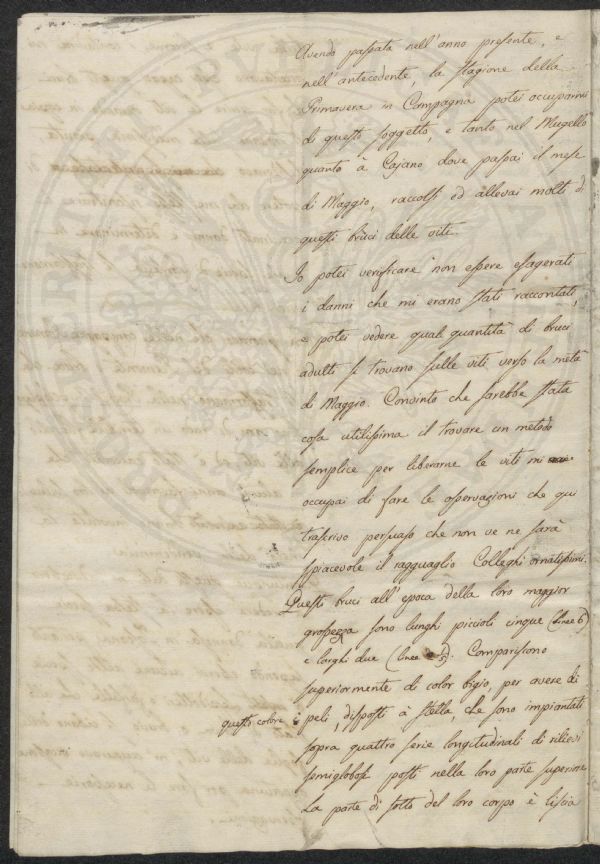 Avendo passata nell'anno presente, e
nell'antecedente, la stagione della
Primavera in Campagna potei occuparmi
di questo soggetto, e tanto nel Mugello
quanto à Cajano dove passai il mese
di Maggio, raccolsi ed allevai molti di
questi bruci delle viti.
Io potei verificare non essere esagerati
i danni che mi erano stati raccontati,
e potei vedere qual quantità di bruci
adulti si trovano sulle viti verso la metà
di Maggio. Convinto che sarebbe stata
cosa utilissima il trovare un metodo
semplice per liberarne le viti mi
occupai di fare le osservazioni che qui
trascrivo persuaso che non ve ne sarà
spiacevole il ragguaglio Colleghi ornatissimi.
Questi bruci all'epoca della loro maggior
grossezza sono lunghi piccioli cinque (linee 6)
e larghi due (linee). Compariscono
superiormente di color bigio, per avere di
questo colore i peli, disposti à stella, che sono impiantati
sopra quattro serie longitudinali di rilievi
semiglobosi posti nella loro parte superiore
La parte di sotto del loro corpo è liscia